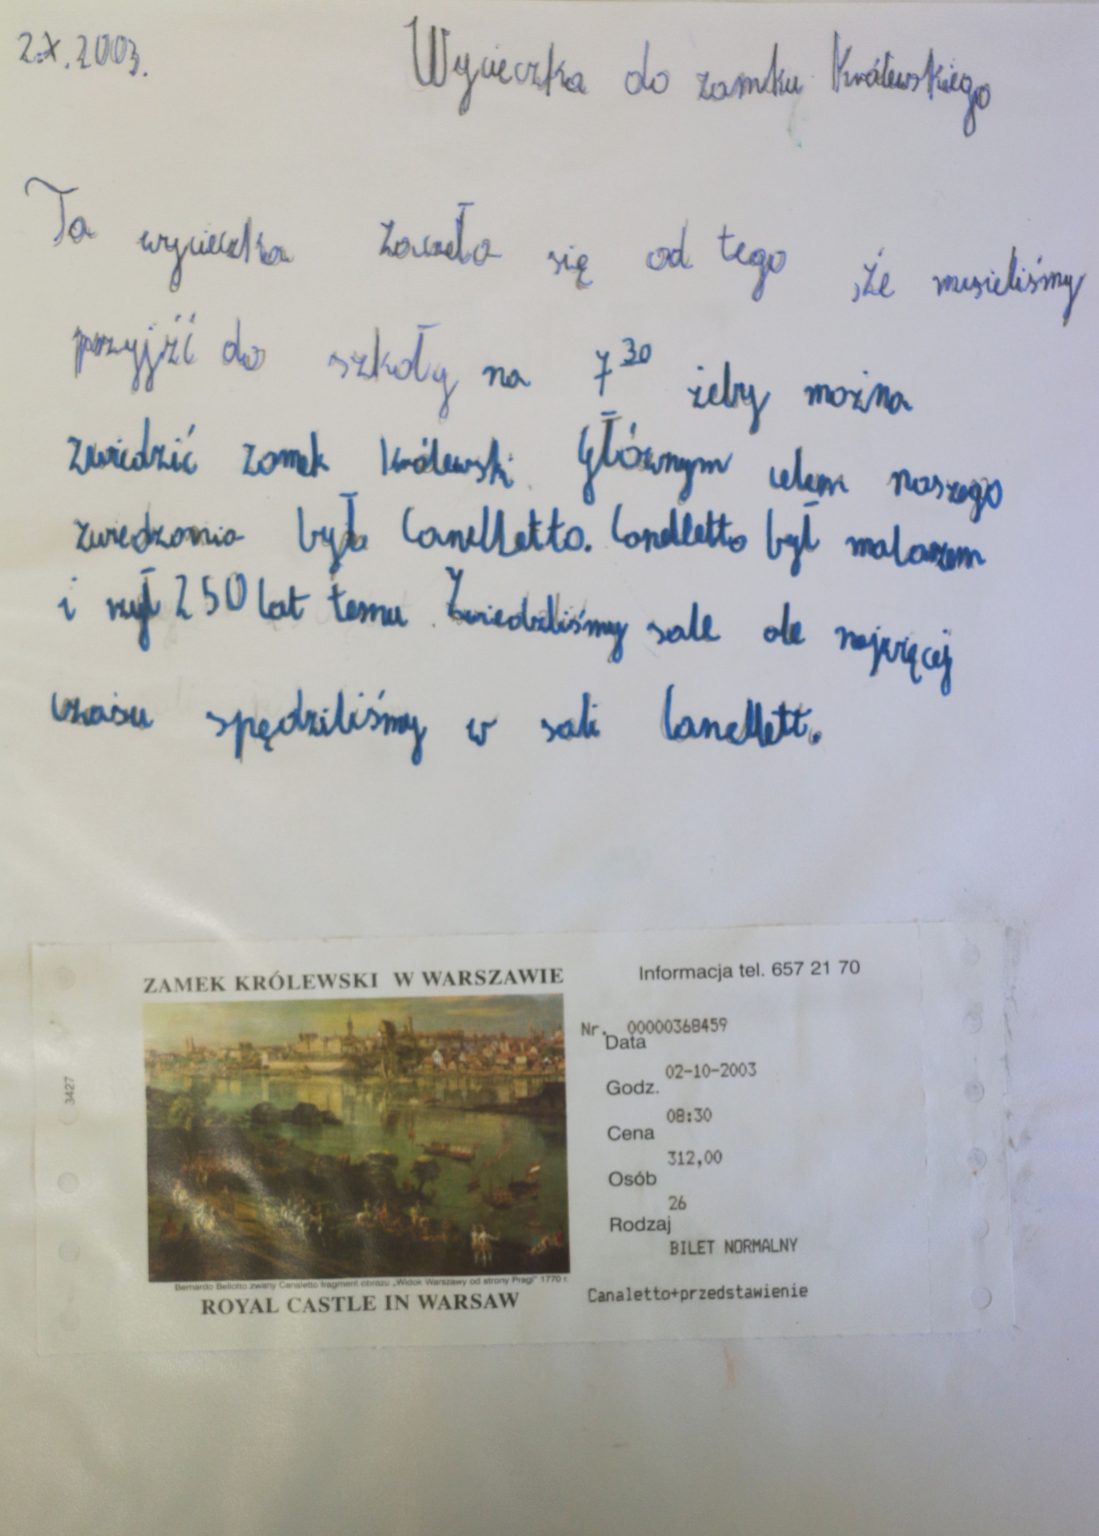 2.X.2003. Wycieczka do zamku Królewskiego
Ta wycieczka zaczeła się od tego że musieliśmy
przyjźć do szkoły na 7 30 żeby można
zwiedzić zamek Królewski. Głównym celem naszego
zwiedzania była Canelletto. Canelletto był malarzem
i żył 250 lat temu. Zwiedziliśmy sale ale najwięcej
czasu spędziliśmy w sali Canellett.
ZAMEK KRÓLEWSKI W WARSZAWIE
Informacja tel. 657 21 70
Nr. 00000368459
Data
02-10-2003
Godz.
08:30
Cena
312,00
Osób
26
Rodzaj
BILET NORMALNY
3427
Bernardo Bellotto zwany Canaletto fragment obrazu „Widok Warszawy od strony Pragi" 1770 r.
ROYAL CASTLE IN WARSAW
Canaletto+przedstawienie